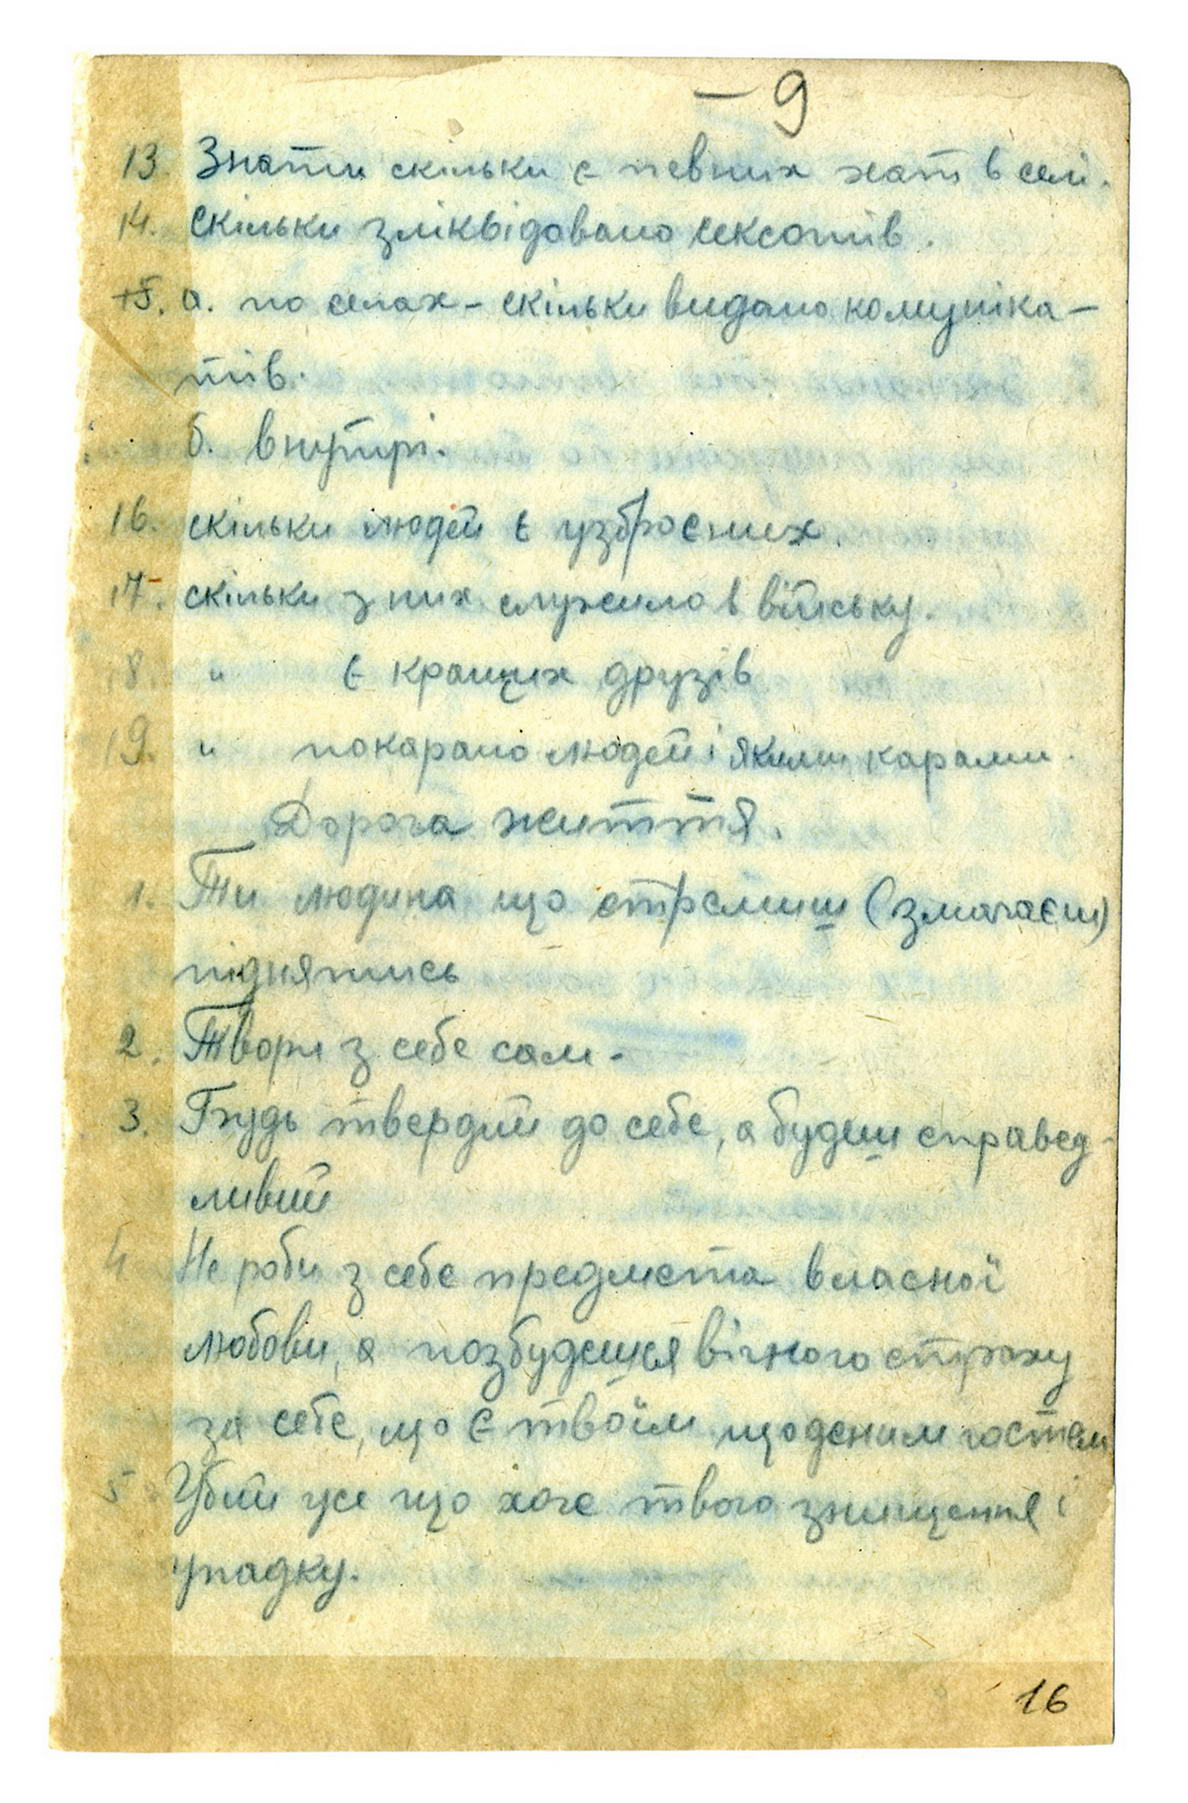 – 9
13. Знати скільки є певних хат в селі.
14. скільки зліквідовано сексотів.
15. а. по селах – скільки видано комуніка–
тів.
б. внутрі.
16. скільки людей є узброєних.
17. скільки з них служило в війську.
18. " є кращих друзів
19. " покарано людей і якими карами.
Дорога життя.
1. Ти людина що стремиш (змагаєш)
піднятись
2. Твори з себе сам.
3. Будь твердий до себе, а будеш справед-
ливий
4 Не роби з себе предмета власної
любови, а позбудешся вічного страху
за себе, що є твоїм щоденим гостем
5. Убий усе що хоче твого знищення і
упадку.
16